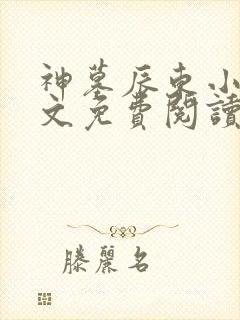 神墓辰东小
文免費閱讀
滕麗名